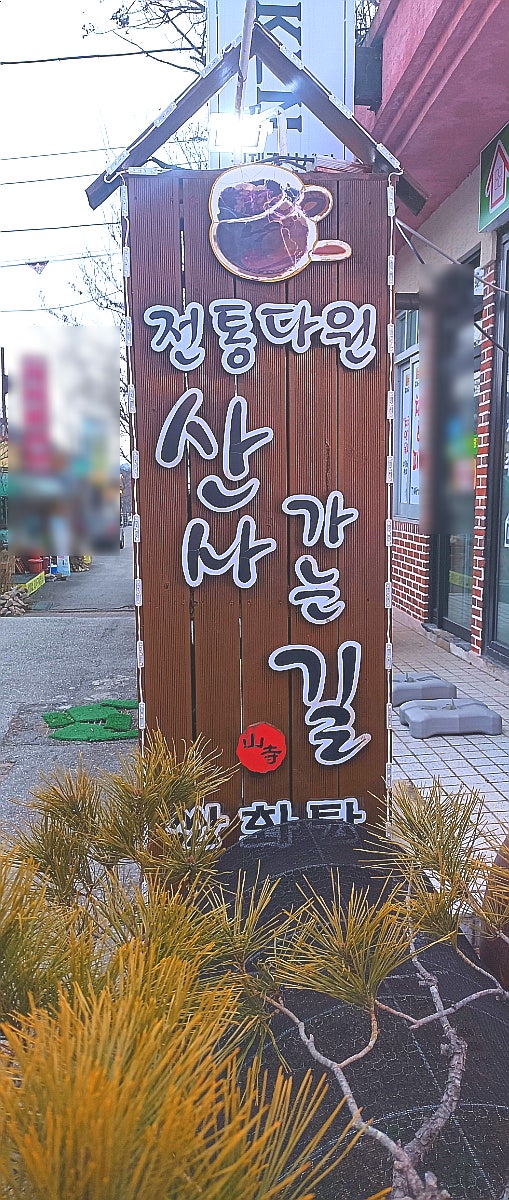 전통다원
산사
가는
길
山寺
쌍화탕